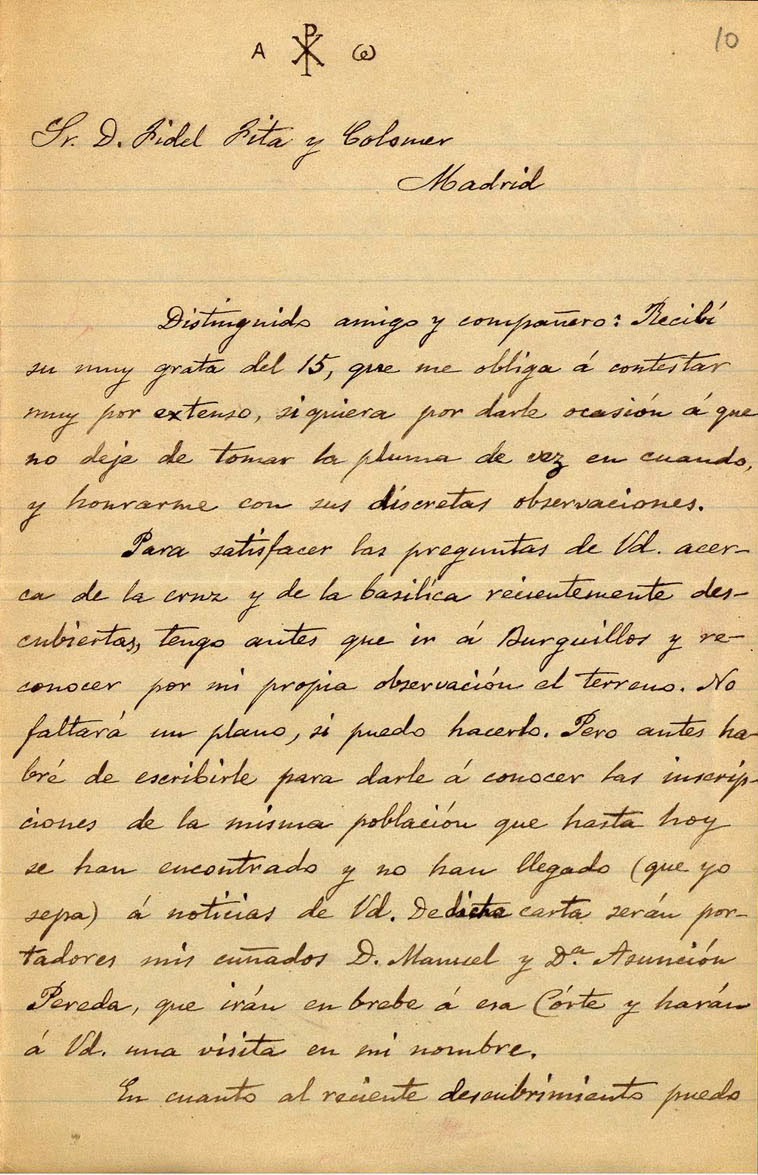 A ☧ ω
10
Sr. D. Fidel Fita y Colomer
Madrid
Distinguido amigo y compañero: Recibí
su muy grata del 15, que me obliga á contestar
muy por extenso, siquiera por darle ocasión á que
no deje de tomar la pluma de vez en cuando,
y honrarme con sus discretas observaciones.
Para satisfacer las preguntas de Vd. acer-
ca de la cruz y de la basílica recientemente des-
cubiertas, tengo antes que ir á Burguillos y re-
conocer por mi propia observación el terreno. No
faltará un plano, si puedo hacerlo. Pero antes ha-
bré de escribirle para darle á conocer las inscrip-
ciones de la misma población que hasta hoy
se han encontrado y no han llegado (que yo
sepa) á noticias de Vd. De dicha carta serán por-
tadores mis cuñados D. Manuel y Dª Asunción
Pereda, que irán en brebe á esa Córte y harán
á Vd. una visita en mi nombre.
En cuanto al reciente descubrimiento puedo